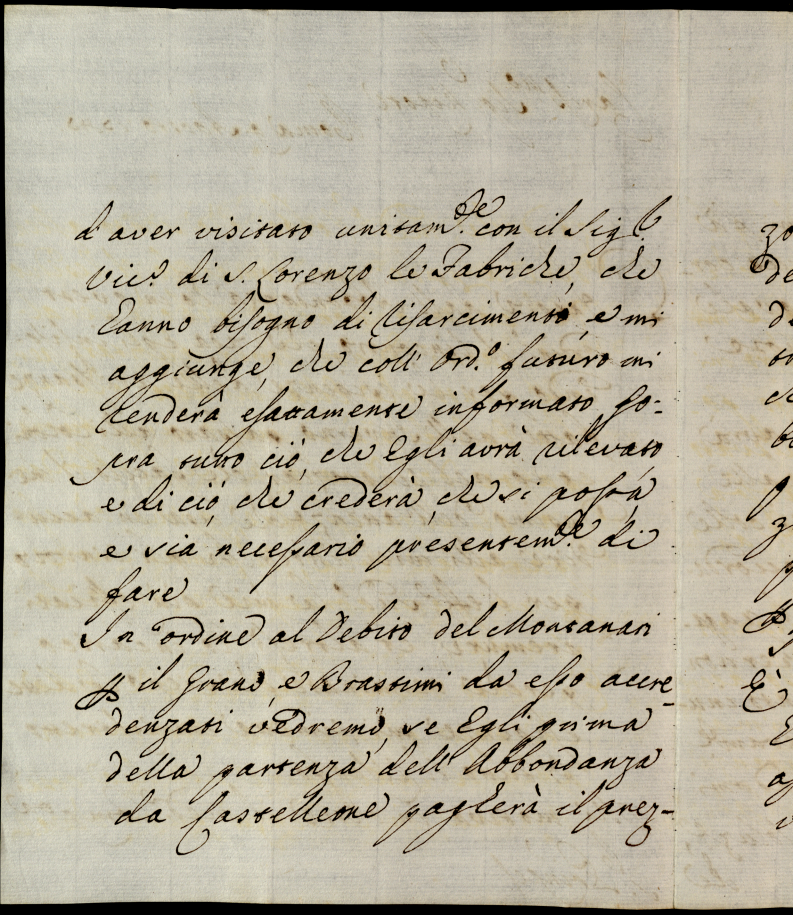 d'aver visitato unitam.te con il Sig.r
Vic.o di S. Lorenzo le Fabriche, che
hanno bisogno di risarcimento, e mi
aggiunge, che coll' Ord.o futuro mi
renderà esattamente informato so-
pra tutto ciò, che Egli avrà rilevato
e di ciò, che crederà, che si possa,
e sia necessario presentem.te di
fare
In ordine al Debito del Montanari
p il Grano, e Brastimi da esso accre-
denzati vedremo, se Egli prima
della partenza dell' Abbondanza
da Castelleone pagherà il prez-
zo
de
de